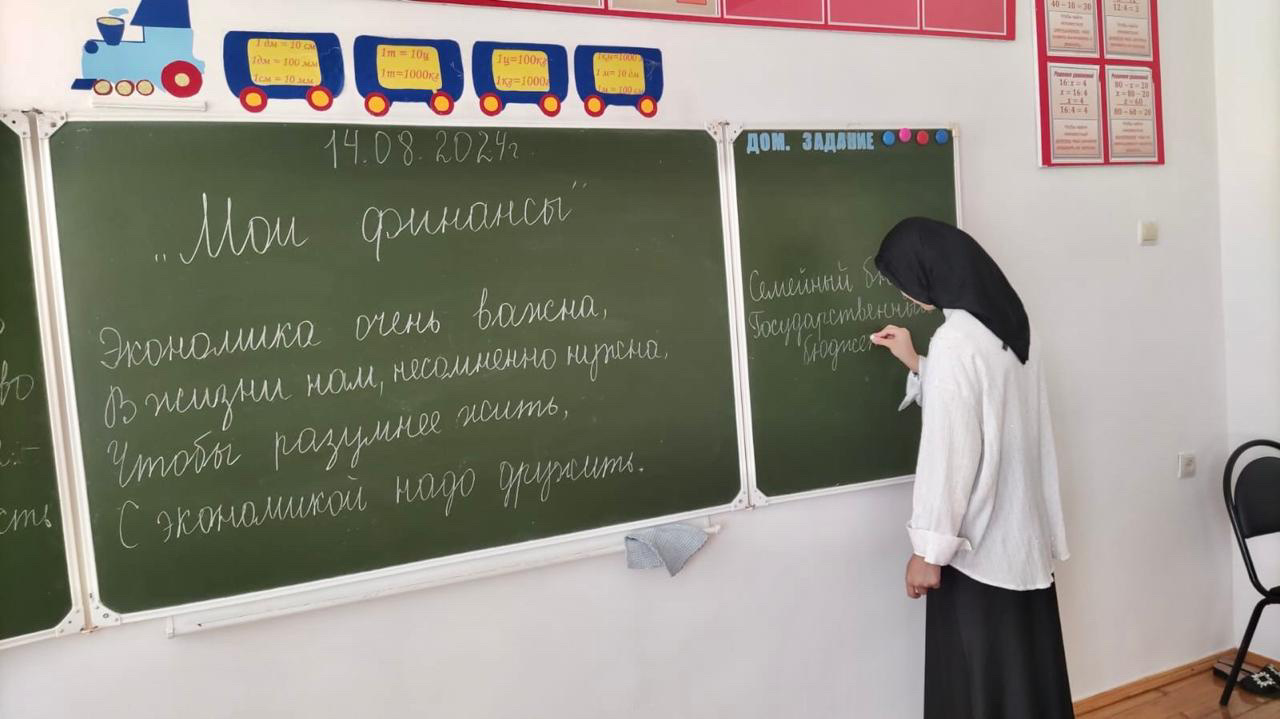 1 дм = 10 см
1дм = 100 мм
1см = 10 мм
1т = 10ц
1т=1000кг
1ц=100кг
1кг=1000г
1км=1000
1 м= 10 дм
1 м= 100 см
40 − 10 = 30
12:4 = 3
Решение уравнений
16:x = 4
x = 16:4
x = 4
16:4 = 4
Решение уравнений
80 − x = 20
x = 80 − 20
x = 60
80 − 60 = 20
14.08.2024г
„Мои финансы"
Экономика очень важна,
В жизни нам, несомненно нужна,
Чтобы разумнее жить,
С экономикой надо дружить.
во
сть
ДОМ. ЗАДАНИЕ
Семейный
Государственный
бюджет